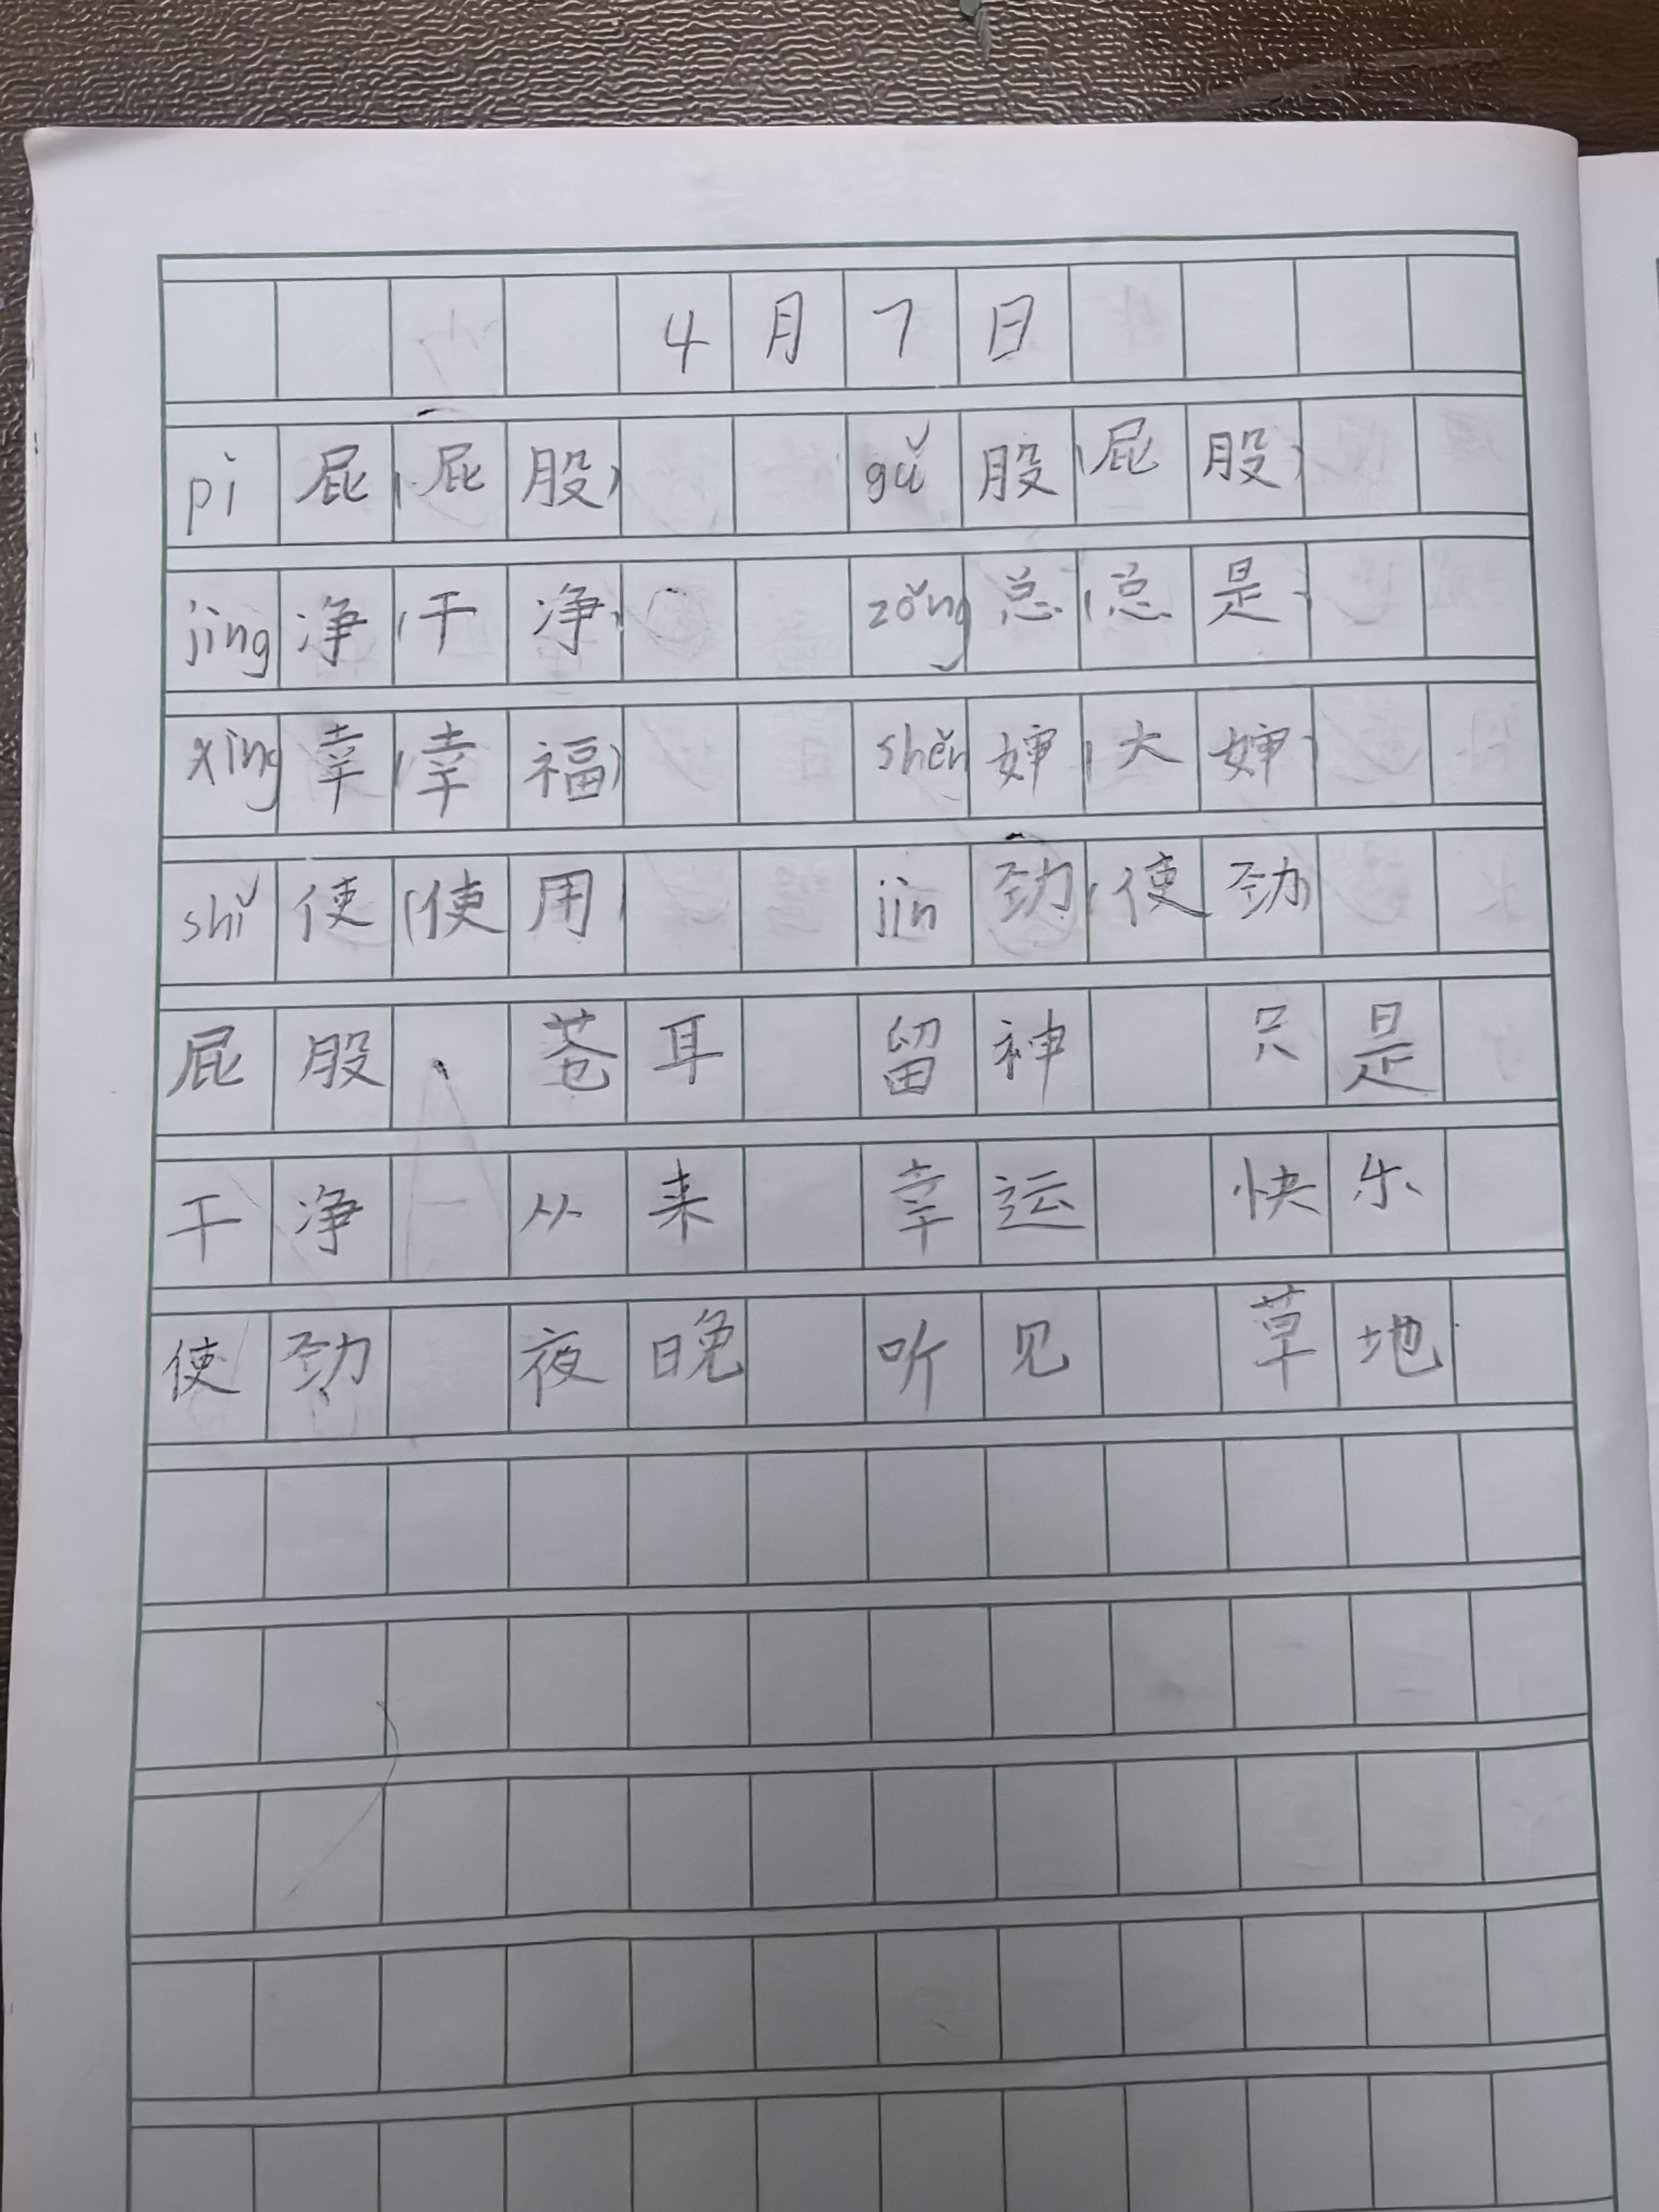 4月7日
pì 屁(屁股) gǔ 股(屁股)
jìng 净(干净) zǒng 总(总是)
xìng 幸(幸福) shěn 婶(大婶)
shǐ 使(使用) jìn 劲(使劲)
屁股、苍耳 留神 只是
干净 从来 幸运 快乐
使劲 夜晚 听见 草地